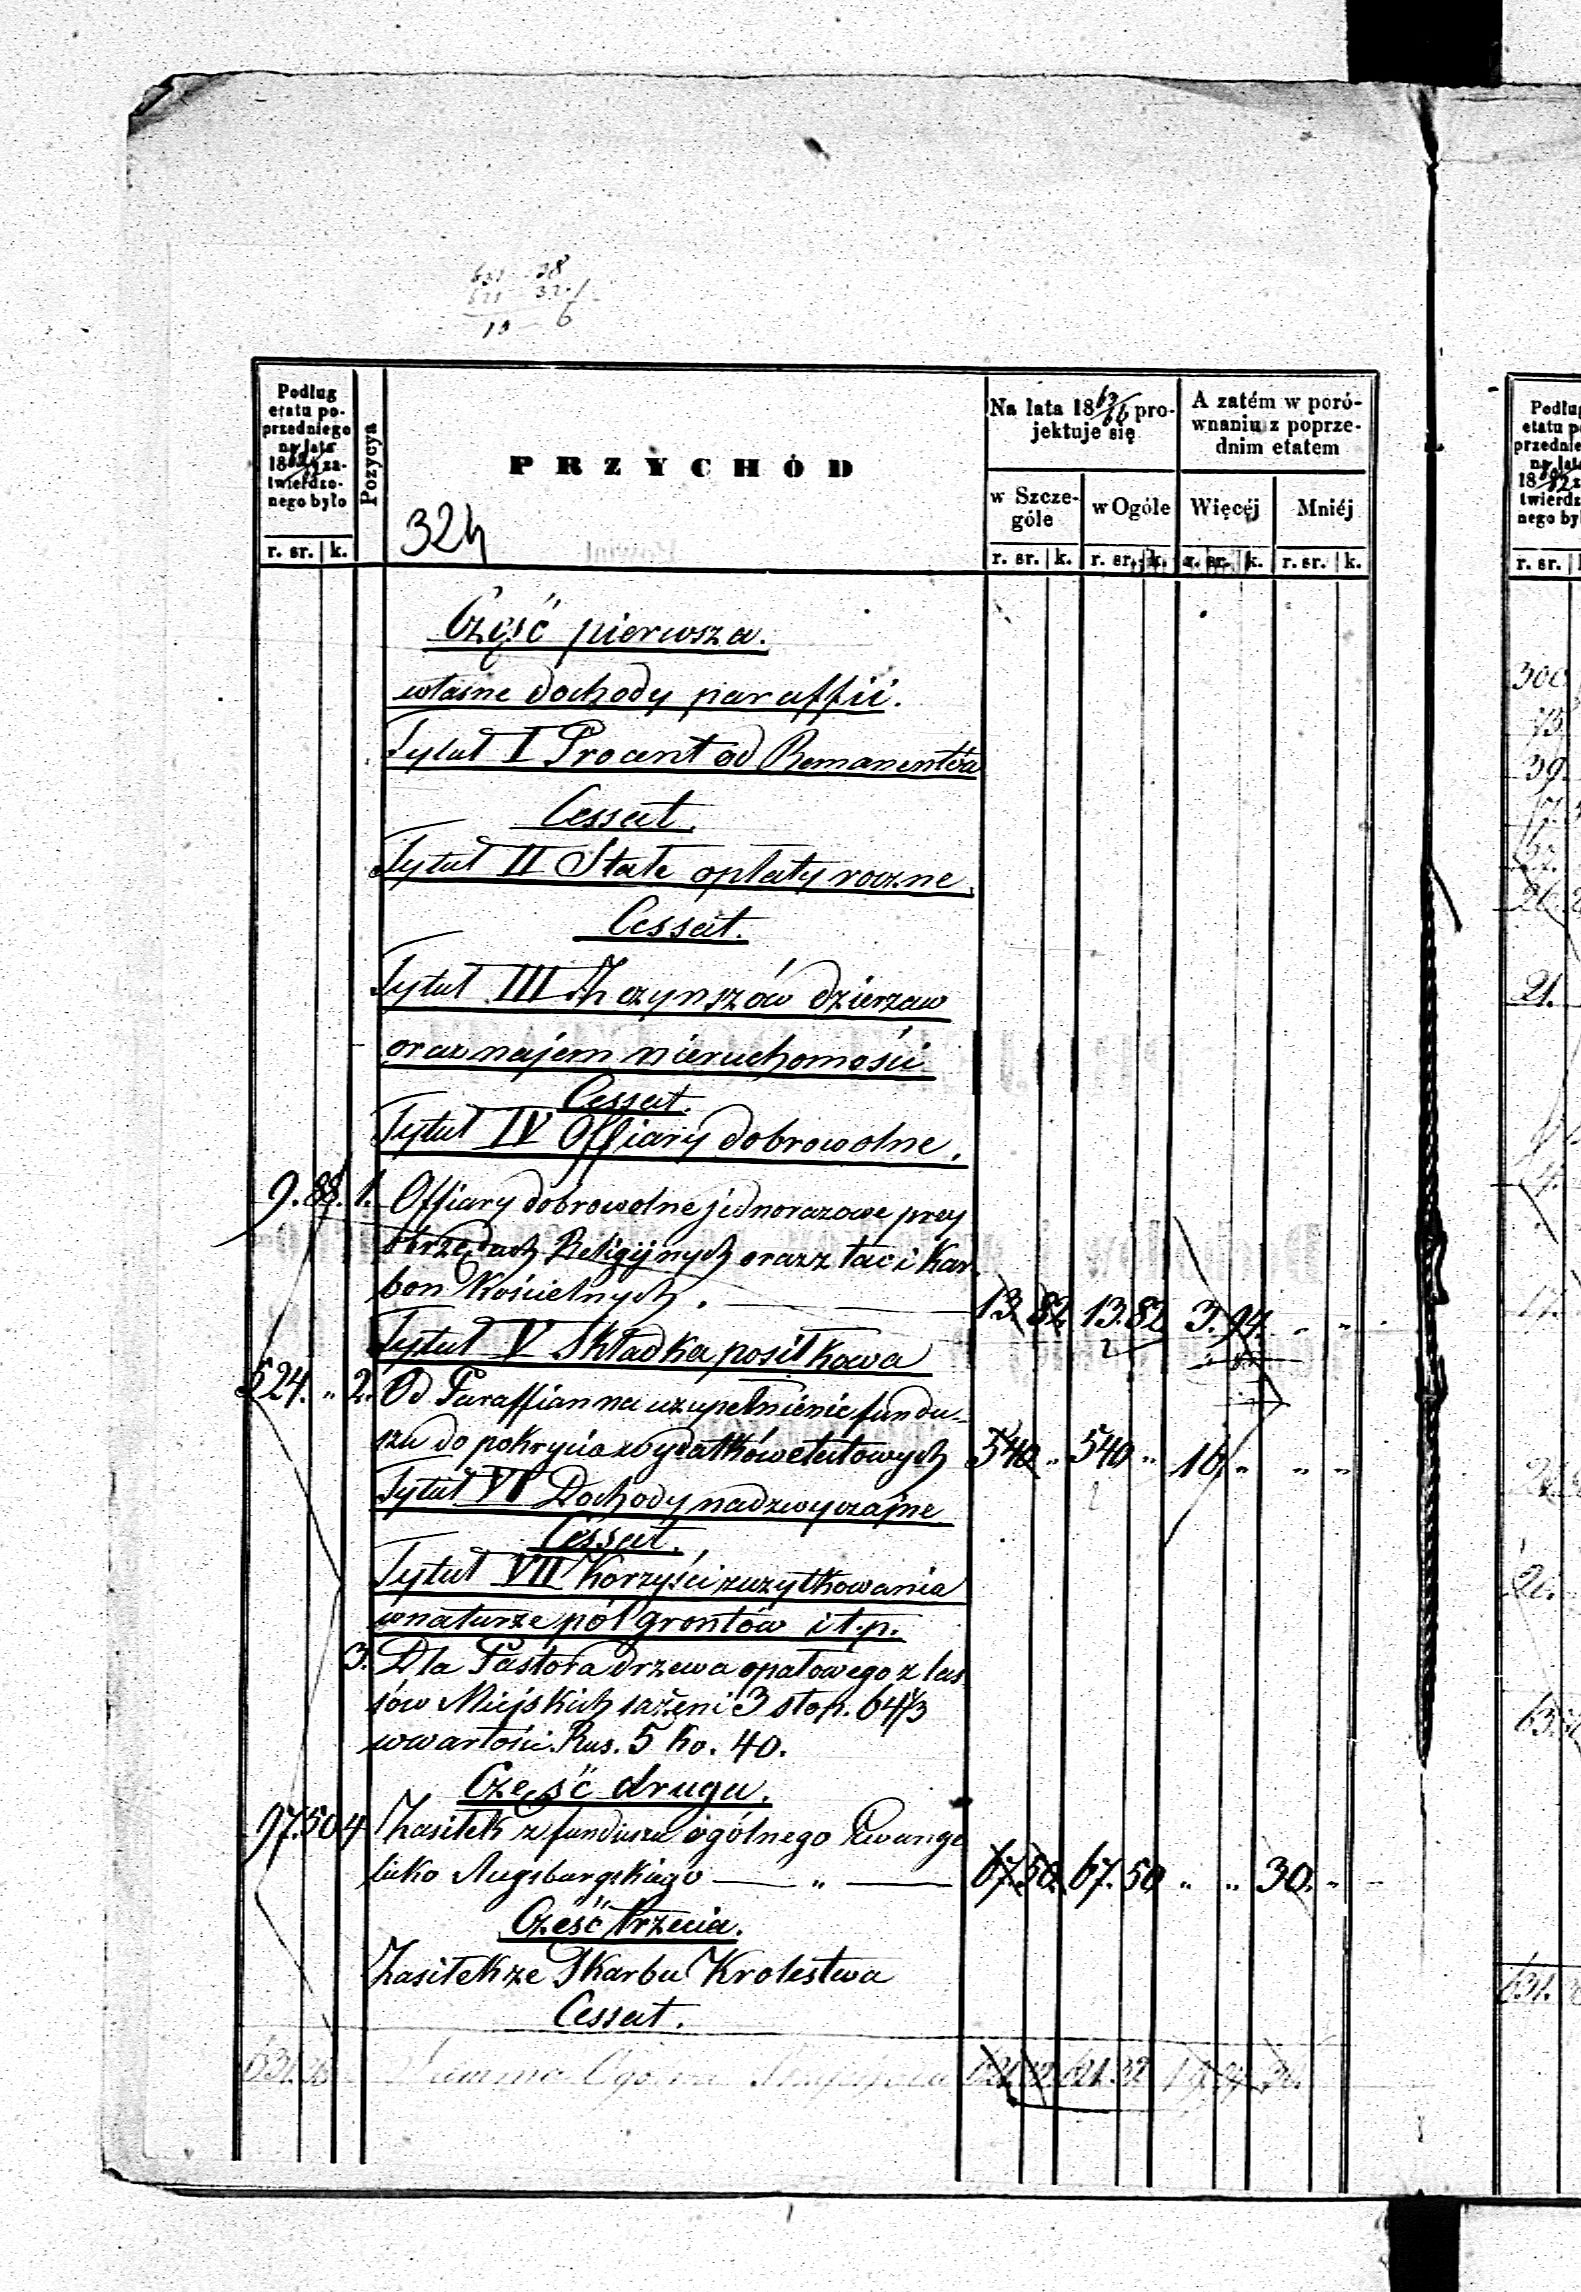 631 28
621 32
10 6
Podług
etatu po-
przedniego
na lata
18 za-
twierdzo-
nego było
Pozycya
PRZYCHÓD
Na lata 18 63/66 pro-
jektuje się
A zatém w poró-
wnaniu z poprze-
dnim etatem
w Szcze-
góle
w Ogóle
Więcéj
Mniéj
324
r. sr. k.
r. sr. k. r. sr. k. r. sr. k. r. sr. k.
Część pierwsza.
własne dochody paraffii.
Tytuł I Procent od Remanentów
Cessat.
Tytuł II Stałe opłaty roczne.
Cessat.
Tytuł III Z czynszów dzierzaw
oraz najem nieruchomości
Cessat.
Tytuł IV Offiary dobrowolne.
9. 88. 1. Offiary dobrowolne jednorazowe przy
obrzędach Religijnych oraz z tac i Kar-
bon Kościelnych. 13. 82. 13. 82 3. 94. " "
Tytuł V Składka posiłkowa
524. " 2. Od Paraffian na uzupełnienie fundu-
szu do pokrycia wydatków etatowych 540 " 540 " 16. " " "
Tytuł VI Dochody nadzwyczajne
Cessat.
Tytuł VII Korzyści z użytkowania
w naturze pól grontów i t. p.
3. Dla Pastora drzewa opałowego z las-
sów Miejskich sążeni 3 stop. 64 1/3
w wartości Rus. 5 ko. 40.
Część druga.
97. 50 4 Zasiłek z funduszu ogólnego Ewange
licko Augsburgskiego " 67. 50. 67. 50 " " 30. "
Część trzecia.
Zasiłek ze Skarbu Krolestwa
Cessat.
631. 38 Summa Ogólna 621. 32. 621. 32 19. 94 30.
Podług
etatu po
przednie
na lata
18
twierdz
nego by
r. sr.
300
39.
21.
631.